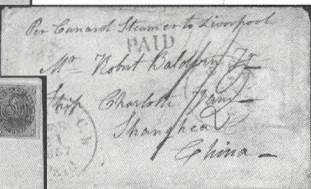 Per Cunard Steamer to Liverpool
PAID
Mr Robert Baldwin Jr
Ship Charlotte
Shanghea
China